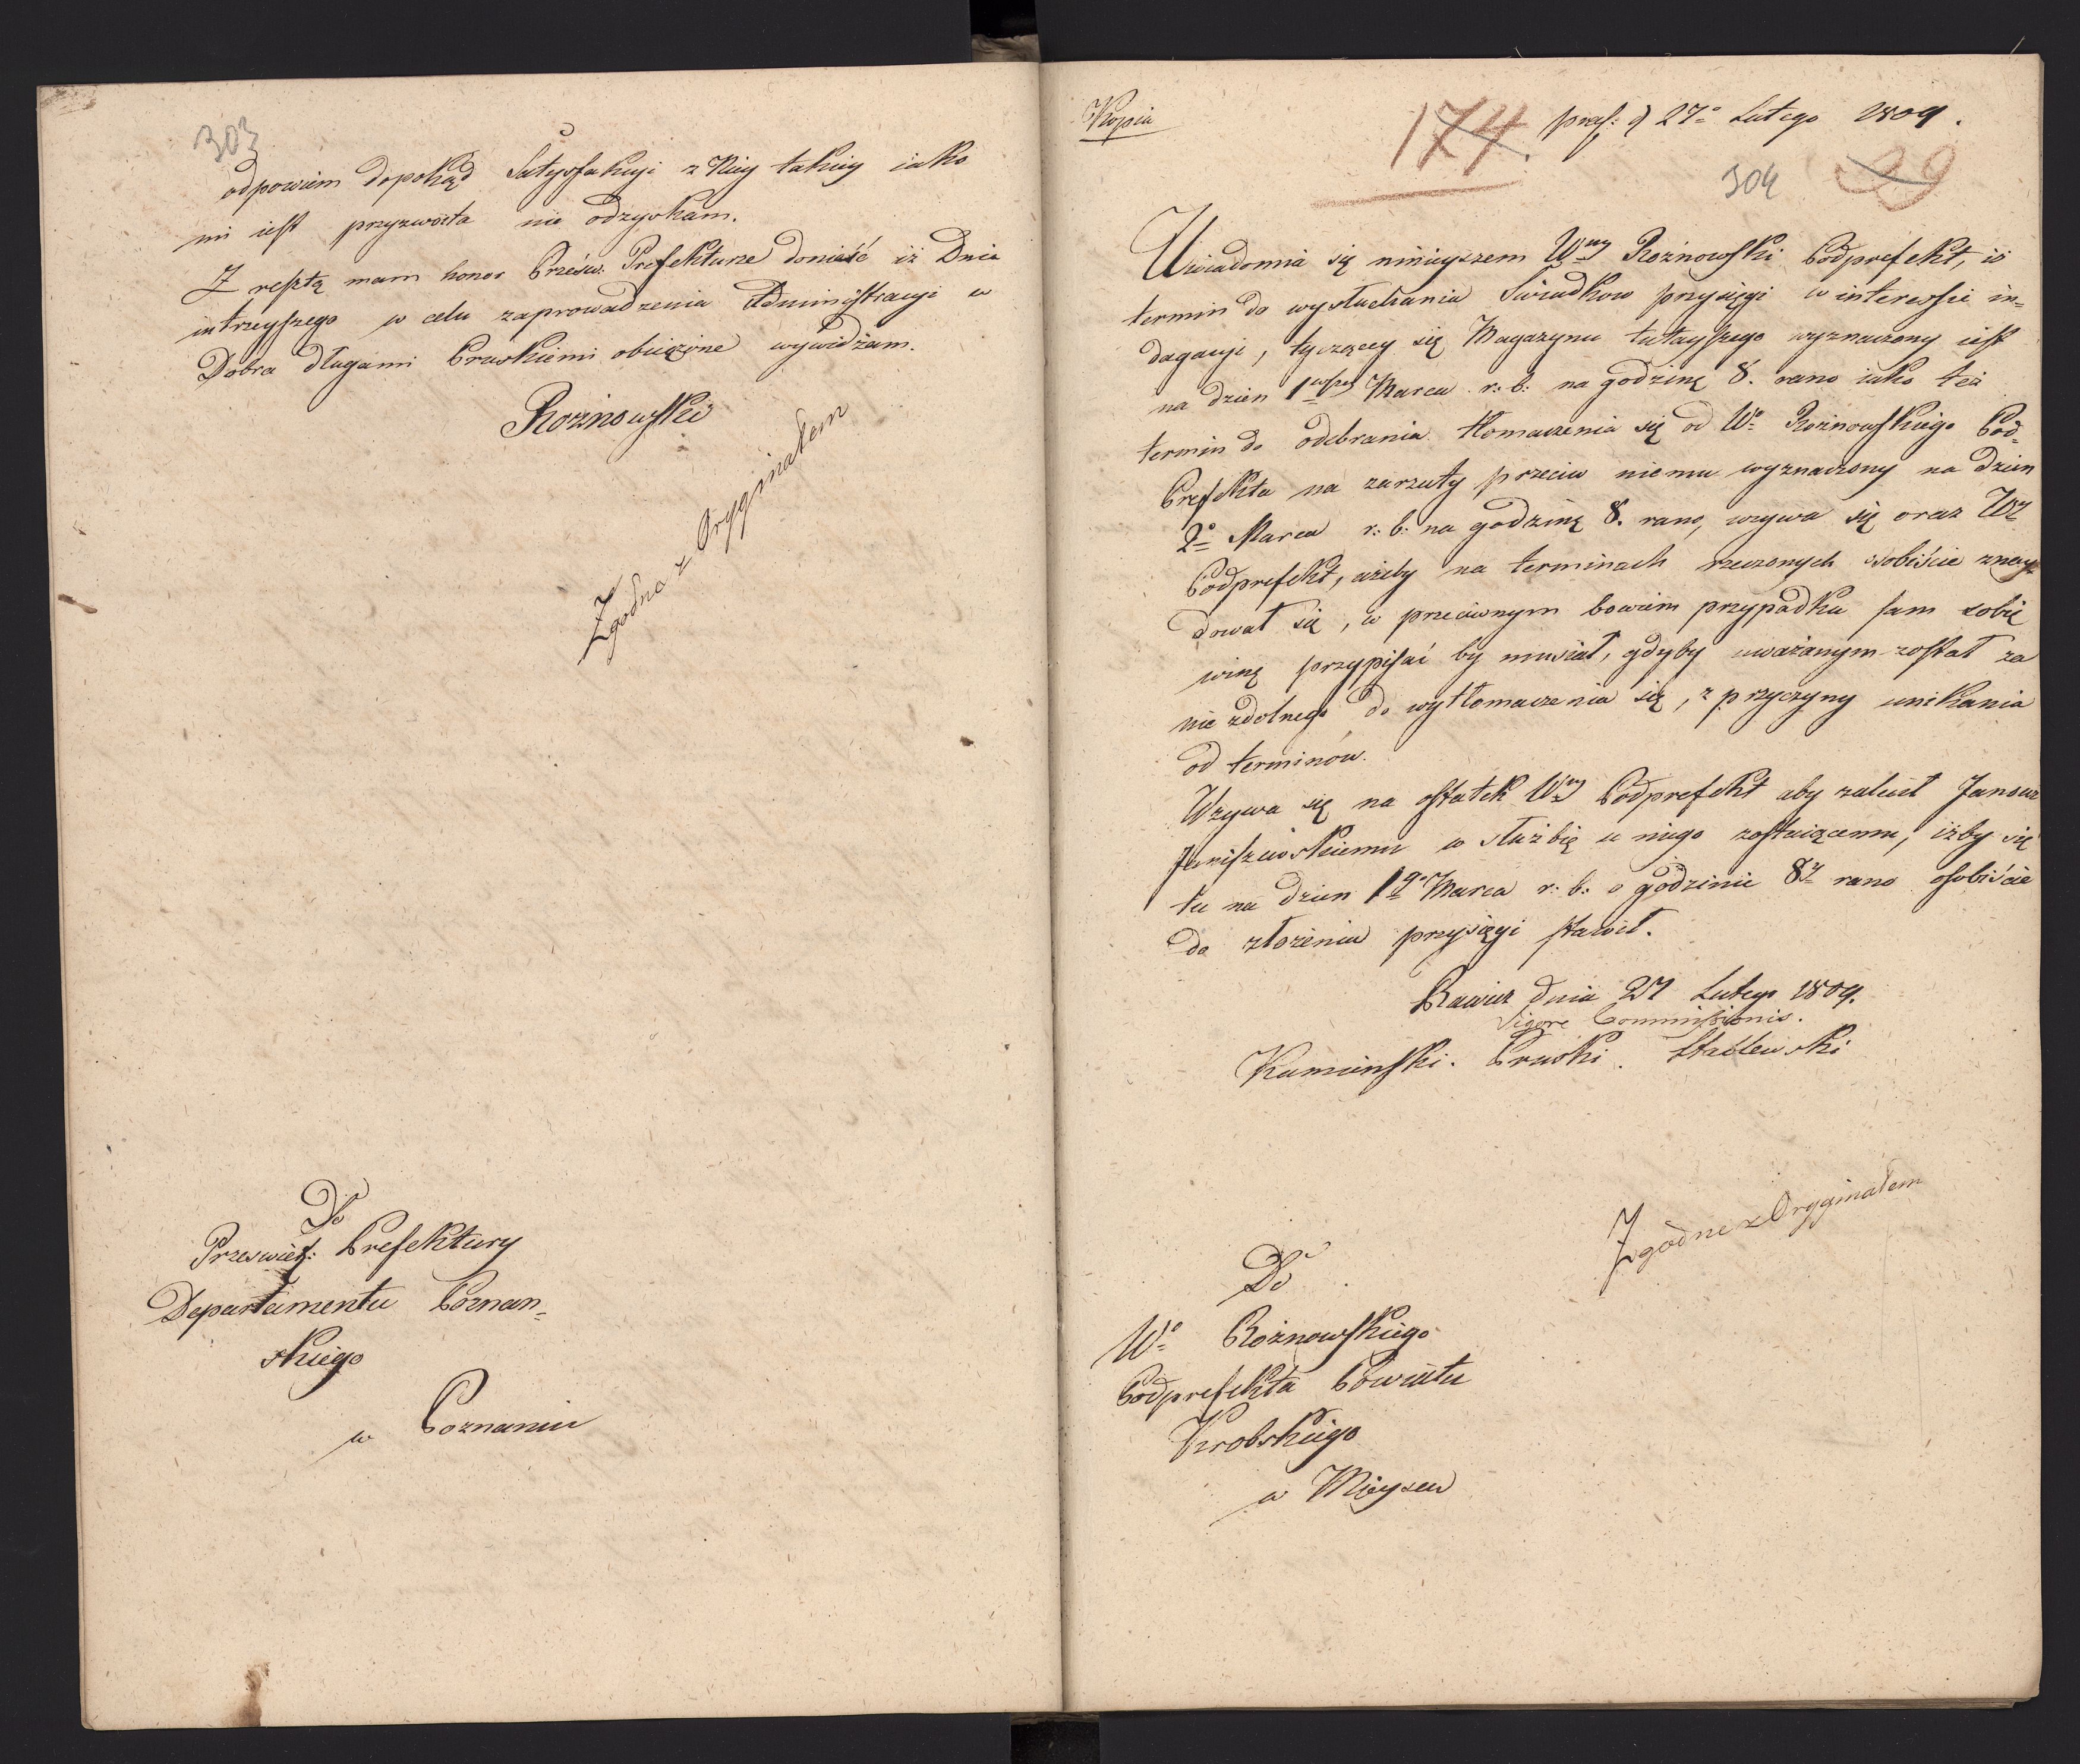 303
odpowiem dopokąd Satysfakcyi z Kiey takiey iako
mi iest przyzwoita nie odzyskam.
Z resztą mam honor Prześw. Prefekturze donieść iż Dnia
intrzeyszego w celu zaprowadzenia Administracyi w
Dobra długami Pruskiemi obciążone wyieżdżam.
Rożnowski
Zgodno z Oryginałem
Do
Przeswiet: Prefektury
Departamentu Poznan=
skiego
w Poznaniu
Kopia
174. præs: d 27º Lutego 1809.
304 89
Uwiadomia się ninieyszem Wny Rożnowski Podprefekt, iż
termin do wysłuchania Swiadkow przysięgi w interessie in=
dagacyi, tyczącey się Magazynu tutayszego wyznaczony iest
na dzien 1wszy Marca r: b: na godzinę 8. rano iako też
termin do odebrania tłomaczenia się od Wº Rożnowskiego Pod=
Prefekta na zarzuty przeciw niemu wyznaczony na dzien
2º Marca r: b: na godzinę 8. rano, wzywa się oraz Wy
Podprefekt, ażeby na terminach rzeczonych osobiście znay=
dował się, w przeciwnym bowiem przypadku sam sobie
winę przypisać by musiał, gdyby uważanym został za
nie zdolnego do wytłomaczenia się, z przyczyny unikania
od terminów.
Wzywa się na ostatek Wny Podprefekt aby zalecił Janowi
Janiszewskiemu w służbie u niego zostaiącemu, iżby się
tu na dzien 1go Marca r: b: o godzinie 8y rano osobiście
do złożenia przysięgi stawił.
Rawicz dnia 27 Lutego 1809.
Vigore Commissionis.
Kamienski. Pruski. Stablewski
Zgodne z Oryginałem
Do
Wº Rożnowskiego
Podprefekta Powiatu
Krobskiego
w Mieyscu